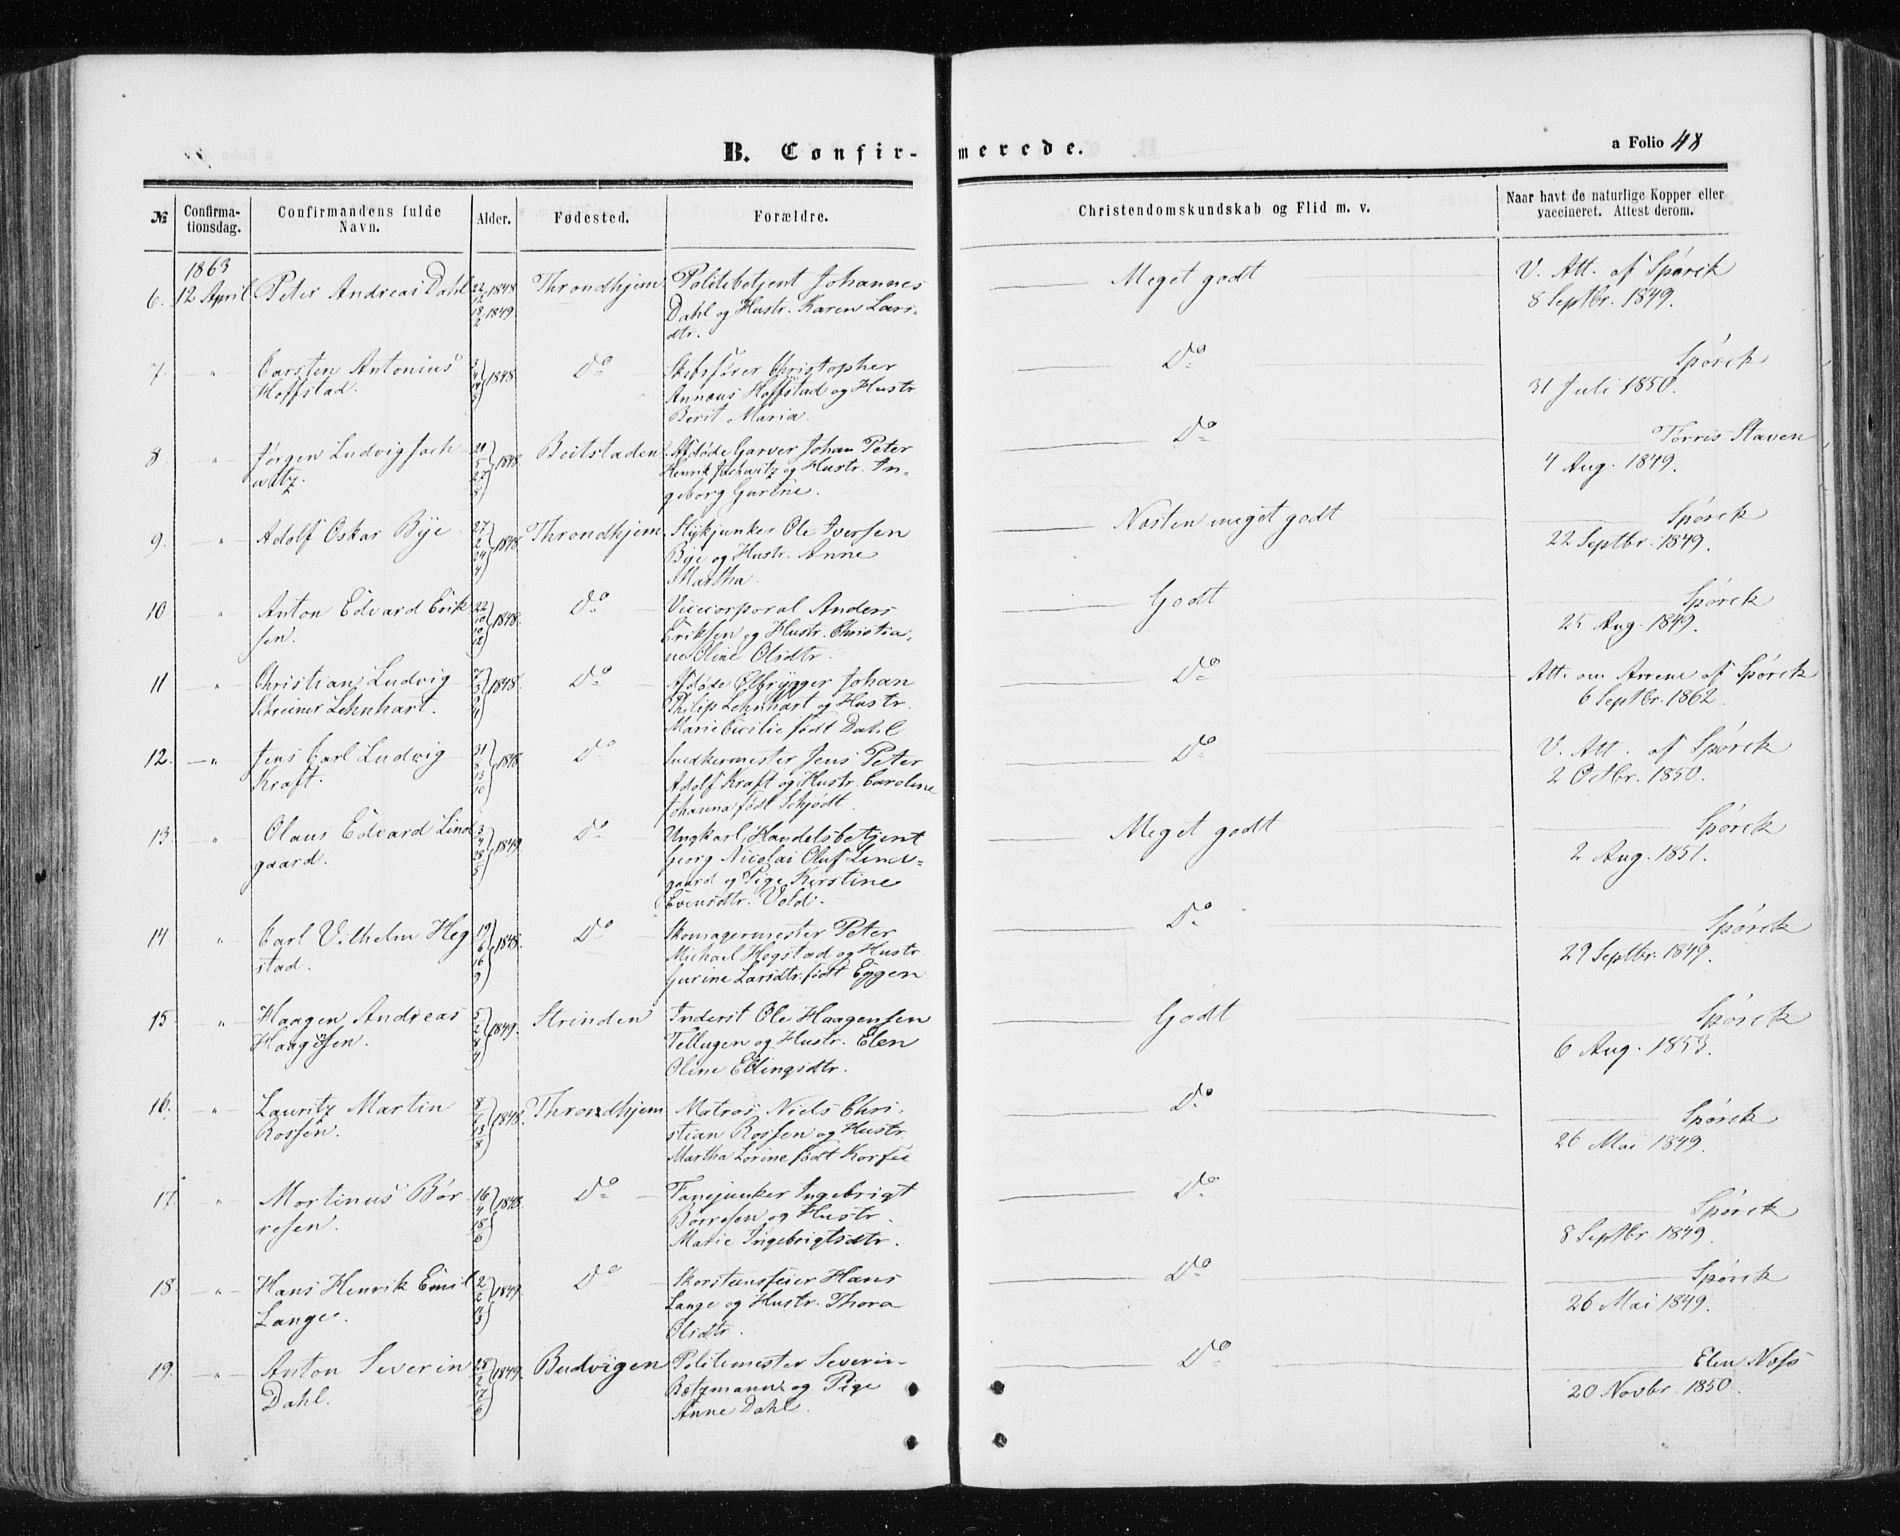 B. Confir-
merede.
a Folio 48
№
Confirma-
tionsdag.
Confirmandens fulde
Navn.
Alder.
Fødested.
Forældre.
Christendomskundskab og Flid m. v.
Naar havt de naturlige Kopper eller
vaccineret. Attest derom.
1863
6. 12 April Peter Andreas Dahl 22/12 1848 Throndhjem Politibetjent Johannes Meget godt V. Att. af Spørck
18/2 1849. Dahl og Hustr. Karen Lars- 8 Septbr. 1849.
dtr.
7. " Carsten Antonius 1848. Do Skibsfører Christopher Do Spørck
Hoffstad. Annæus Hoffstad og Hustr. 31 Juli 1850.
Berit Maria.
8 " Jørgen Ludvig Jach- 20/5 1848. Beitstaden Afdøde Garver Johan Peter Do Torris Staven
witz. 27/8 Henrik Jachwitz og Hustr. In- 4 Aug. 1849.
geborg Gurine.
9. " Adolf Oskar Bye 27/2 1848 Throndhjem Stykjunker Ole Iversen Næsten meget godt Spørck
24/4 Bye og Hustr. Anne 22 Septbr. 1849.
Martha.
10 " Anton Edvard Erik- 22/10 1848. Do Vicecorporal Anders Godt Spørck
sen. 10/12 Eriksen og Hustr. Christia- 25 Aug. 1849.
ne Oline Olsdtr.
11 " Christian Ludvig 7/3 1848. Do Afdøde Ølbrygger Johan Do Att. om Arrene af Spørck
Schreiner Lehnhart. Philip Lehnhart og Hustr. 6 Septbr. 1862.
Marie Cecilie født Dahl
12. " Jens Carl Ludvig 31/8 1848 Do Snedkermester Jens Peter Do V. Att. af Spørck
Kraft. 13/10 Adolf Kraft og Hustr. Caroline 2 Octbr. 1850.
Johanna født Schjødt.
13. " Olaus Edvard Lind- 3/4 1849 Do Ungkarl, Handelsbetjent Meget godt Spørck
gaard. 28/5 Georg Nicolai Oluf Lind- 2 Aug. 1851.
gaard og Pige Kirstine
Evensdtr. Vold.
14 " Carl Vilhelm Heg- 19/6 1848. Do Skomagermester Peter Do Spørck
stad. 16/9 Michael Hegstad og Hustr. 29 Septbr. 1849.
Gurine Larsdtr. født Eggen
15. " Haagen Andreas 5/2 1849. Strinden Inderst Ole Haagensen Godt Spørck
Haagensen. 8/4 Tellugen og Hustr. Elen 6 Aug. 1853.
Oline Ellingsdtr.
16. " Lauritz Martin 8/7 1848. Throndhjem Matros Niels Chri- Do Spørck
Rossen. 13/8 stian Rossen og Hustr. 26 Mai 1849.
Martha Lorine født Korsen
17. " Mortinus Bør- 16/4 1848. Do Fanejunker Ingebrigt Do Spørck
resen. 18/6 Børresen og Hustr. 8 Septbr. 1849.
Marie Ingebrigtsdtr.
18. " Hans Henrik Emil 2/2 1849 Do Skorsteensfeier Hans Do Spørck
Lange. Lange og Hustr. Thora 26 Mai 1849.
Olsdtr.
19. " Anton Severin 28/2 1849. Budvigen Politimester Severin Do Elen Næss
Dahl. 17/6 Retzmann og Pige 20 Novbr. 1850.
Anne Dahl.